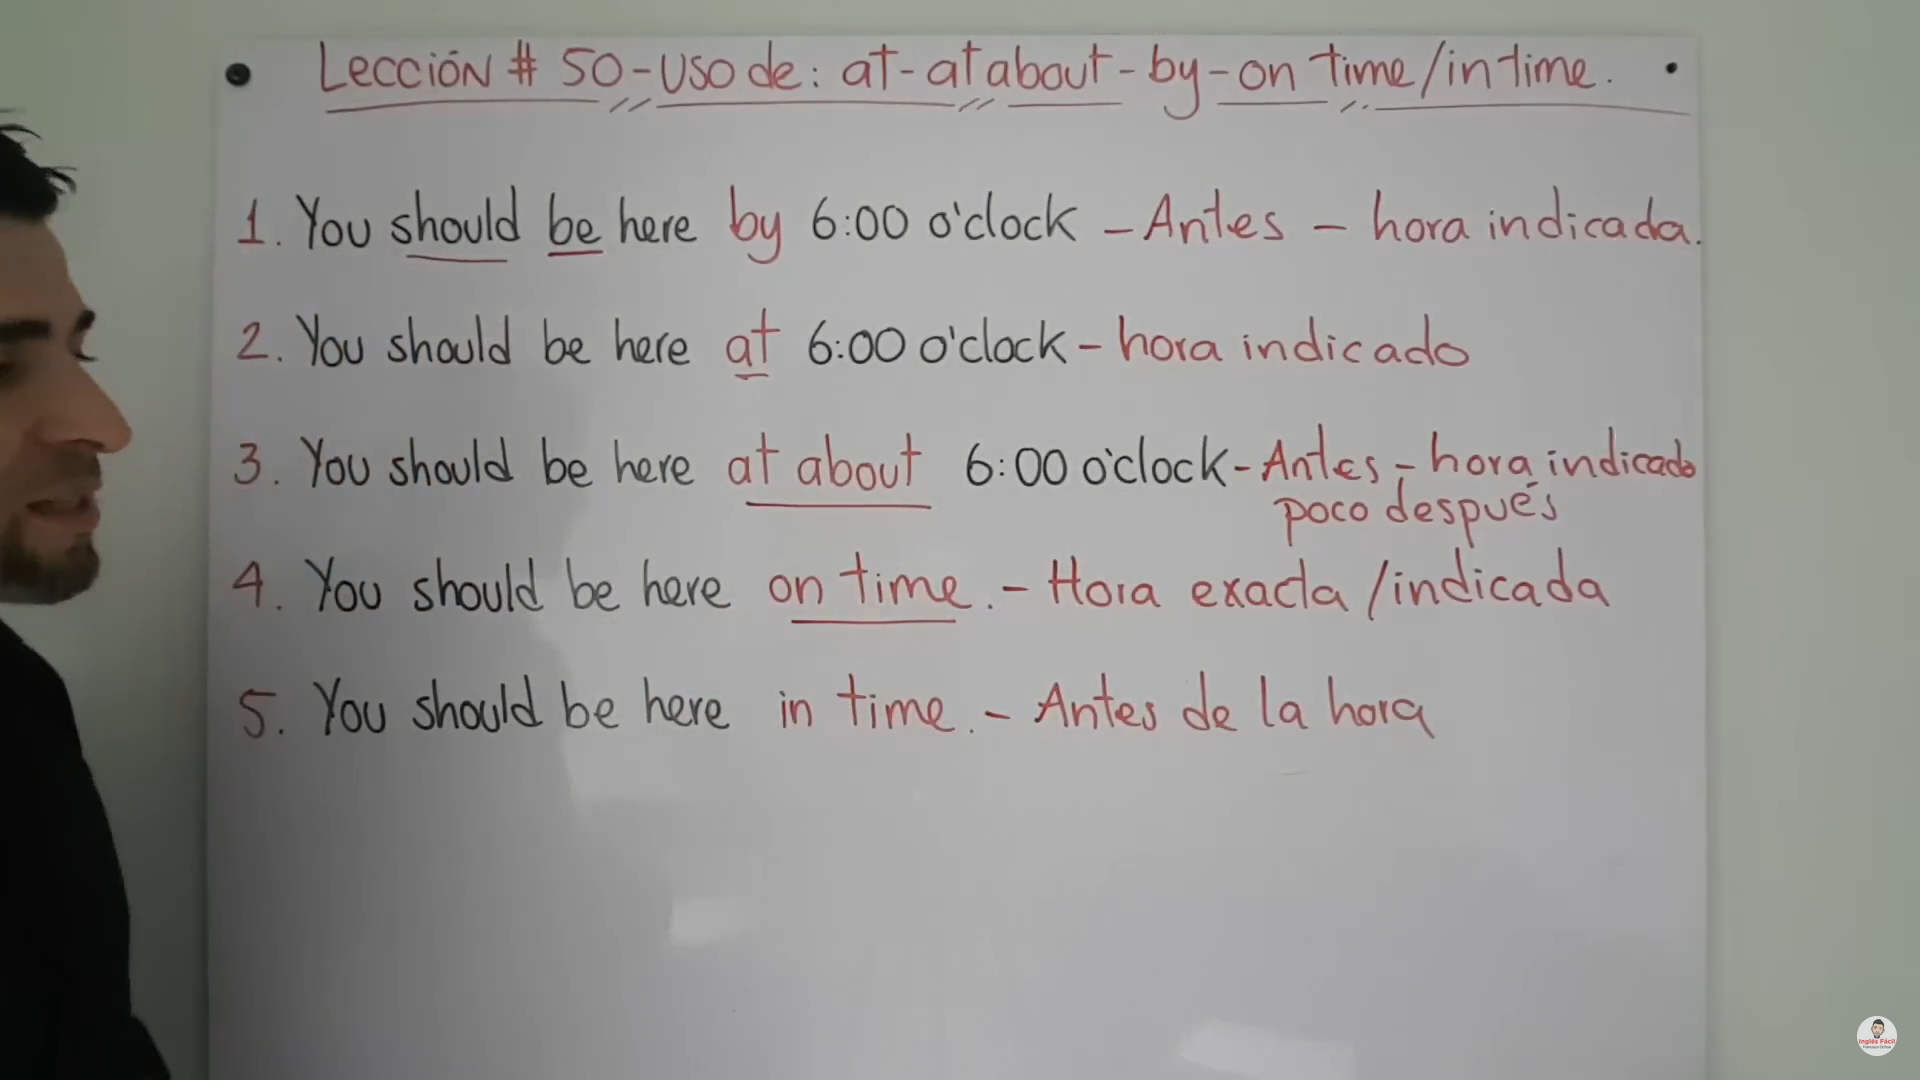 Lección # 50 - Uso de: at - at about - by - on time / in time.
1. You should be here by 6:00 o'clock - Antes - hora indicada.
2. You should be here at 6:00 o'clock - hora indicado
3. You should be here at about 6:00 o'clock - Antes - hora indicado
poco después
4. You should be here on time. - Hora exacta / indicada
5. You should be here in time. - Antes de la hora
Inglés Fácil